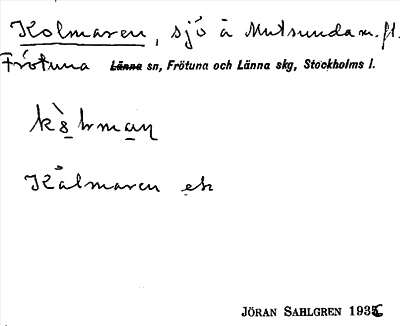 Kolmaren, sjö å Mutsunda m. fl.
Frötuna Länna sn, Frötuna och Länna skg, Stockholms l.
Kålmaren ek
JÖRAN SAHLGREN 1936